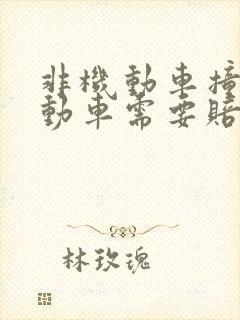 非機動車撞
動車需要賠
林玫瑰